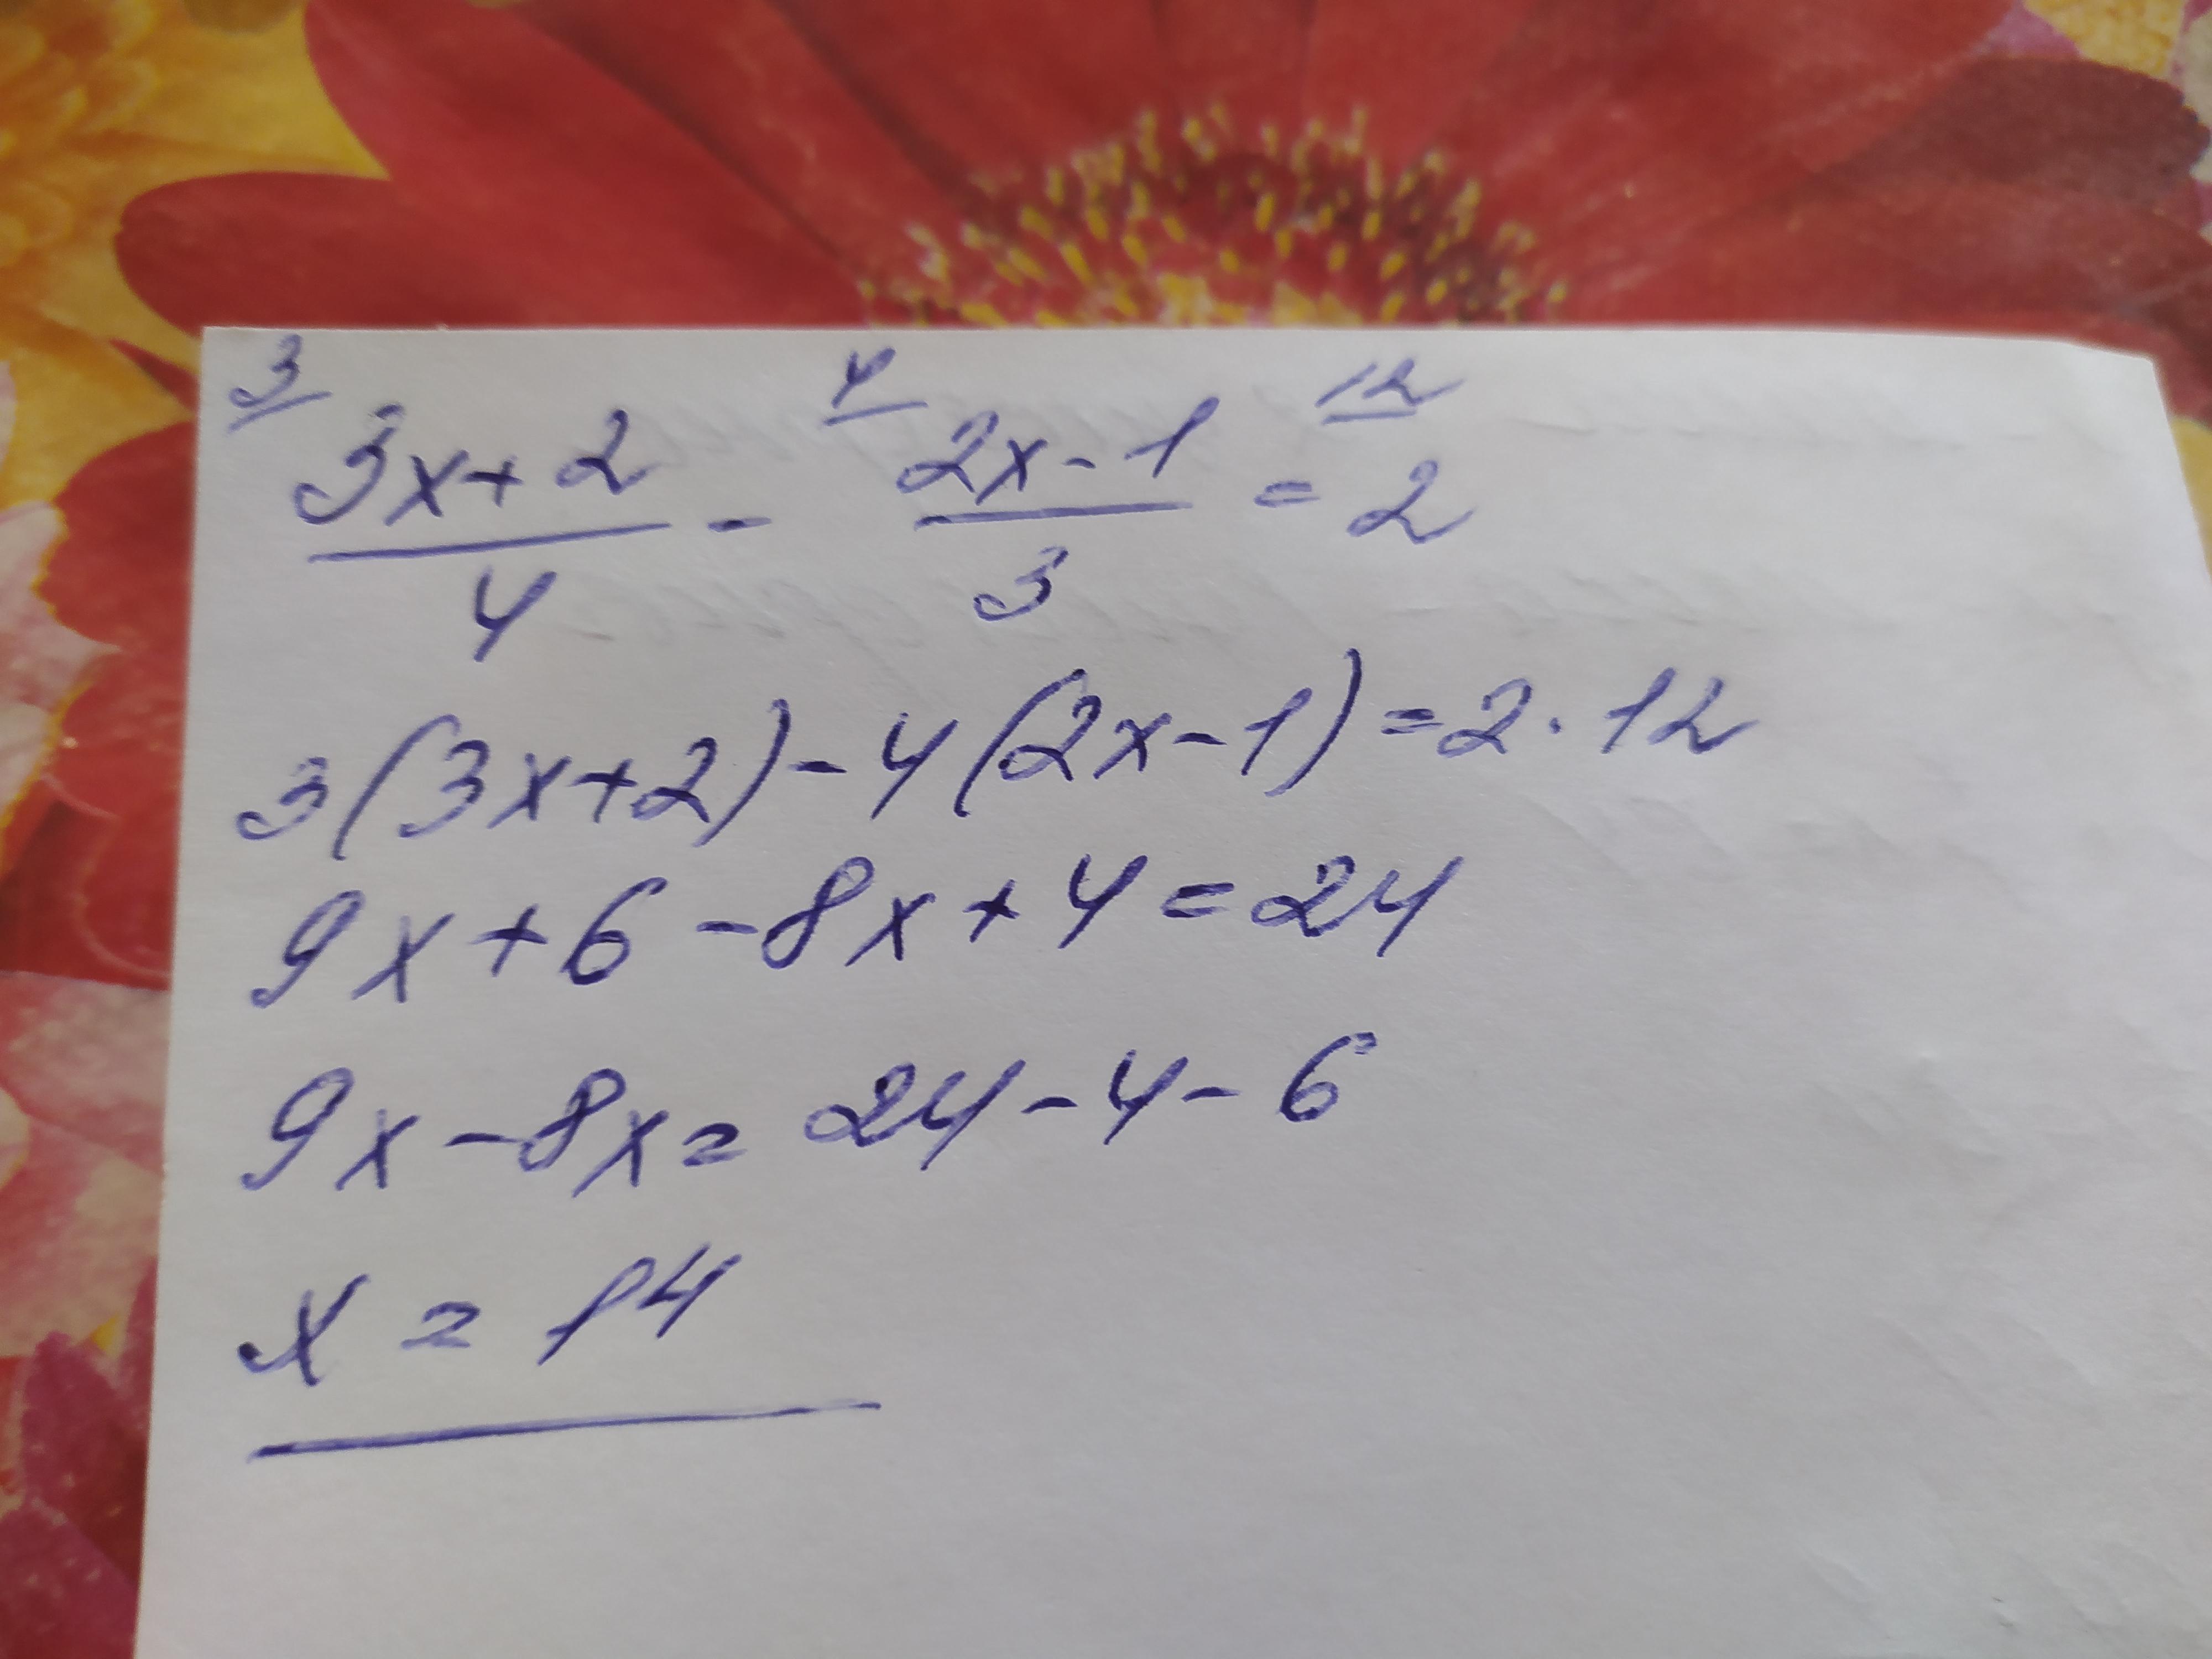 3 4 12
3x+2 / 4 - 2x-1 / 3 = 2
3(3x+2)-4(2x-1)=2·12
9x+6-8x+4=24
9x-8x=24-4-6
x=14